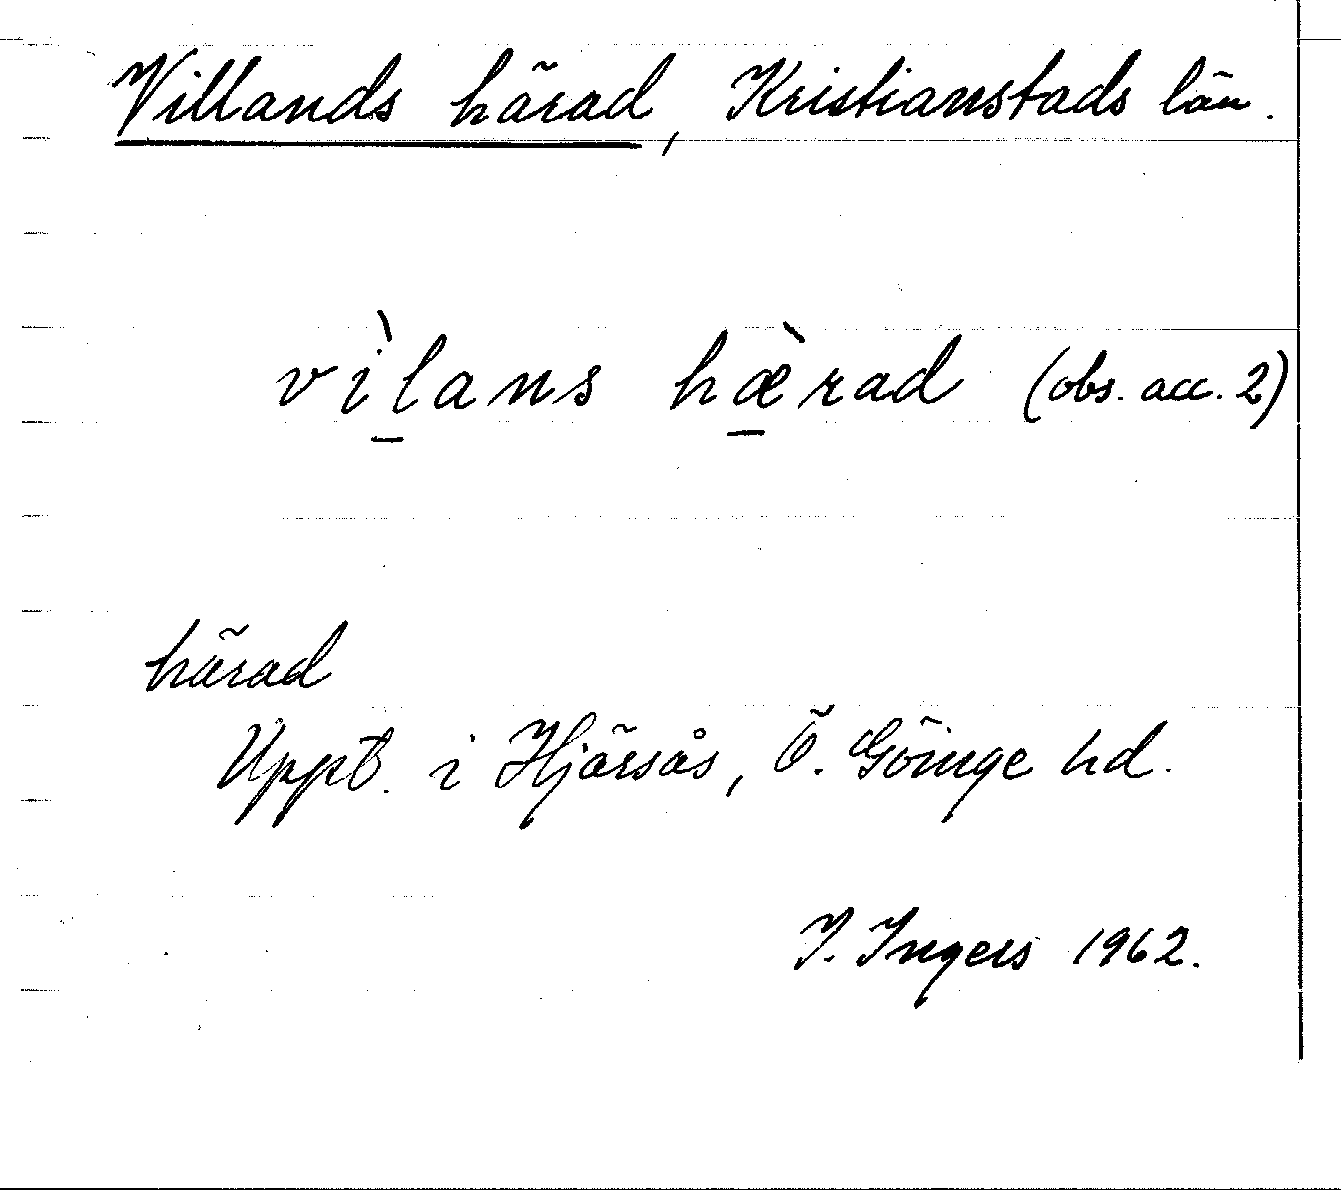 Villands härad, Kristianstads län.
vìlans hæ̀rad (obs. acc. 2)
härad
Uppt. i Hjärsås, Ö. Göinge hd.
I. Ingers 1962.